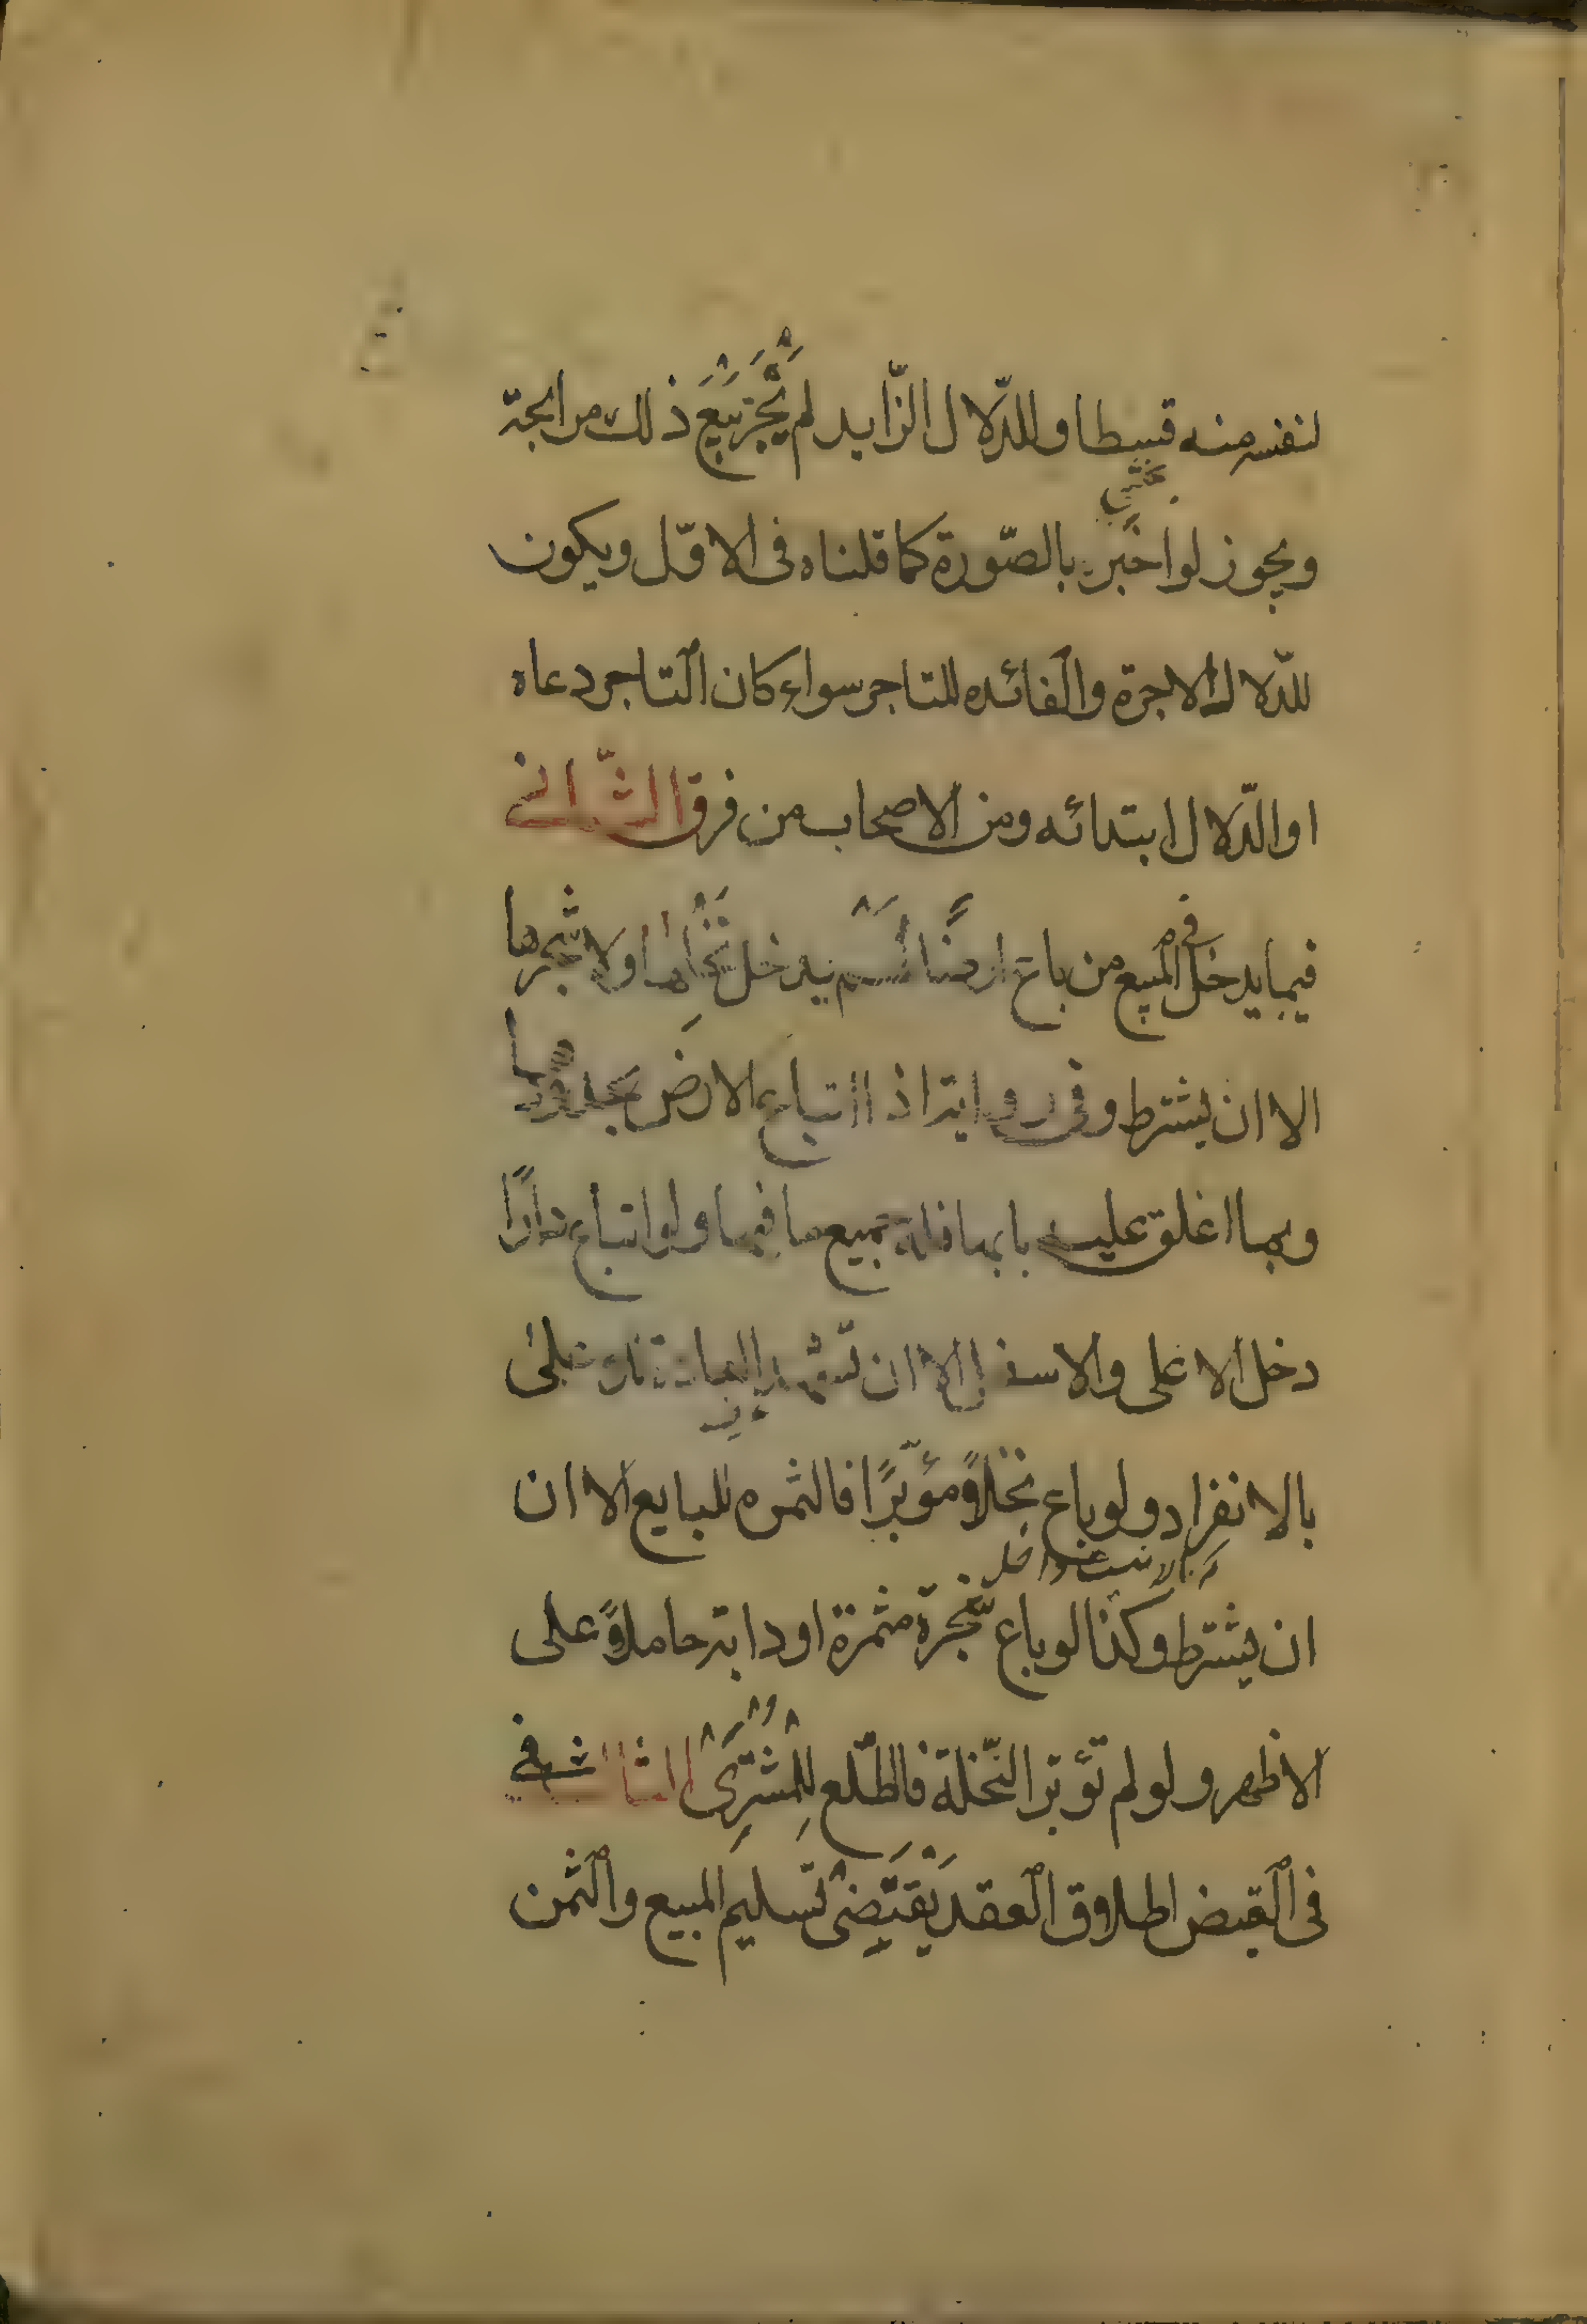 لنفسه منه قسطا وللدّلال الزّايد لم يُجْزِ بَيْعَ ذلك مرابحة
ويجوز لو اخبر بالصّورة كما قلناه فى الاوّل ويكون
للدّلال الاجرة والفائده للتاجر سواء كان التاجر دعاه
او الدّلال ابتدائه ومن الاصحاب من فرق الثّانى
فيما يدخل فى المبيع من باع ارضًا لم يدخل نخلها ولا شجرها
الا ان يشترط وفى رواية اذا ابتاع الارض بحدودها
وبما اغلق عليه بابها فله جميع ما فيها ولو ابتاع دارًا
دخل الاعلى والاسفل الا ان تشهد العادة للاعلى
بالانفراد ولو باع نخلاً مؤبّرًا فالثمره للبايع الا ان
ان يشترط وكذا لو باع شجرة مثمرة او دابة حاملاً على
الاظهر ولو لم تؤبر النّخلة فالطّلع لِلْمُشْتَرِىْ الثالث فى
فى القبض اطلاق العقد يَقْتَضِىْ تسليم المبيع والثمن